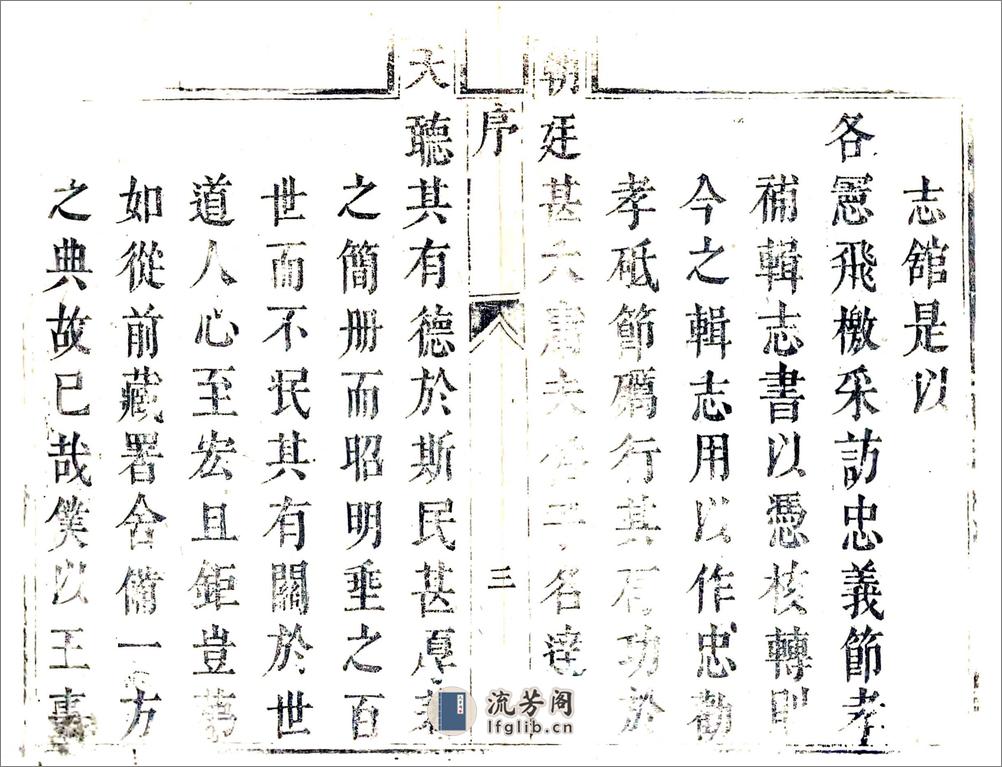 志舘是以
各憲飛檄采訪忠義節孝
補輯志書以憑核轉則
今之輯志用以作忠勸
孝砥節礪行其有功於
朝廷甚大
名達
序
三
天聽其有德於斯民甚厚
之簡册而昭明垂之百
世而不泯其有關於世
道人心至宏且鉅豈
如從前藏署舍備一方
之典故已哉僕以王事
流芳阁
lfglib.cn